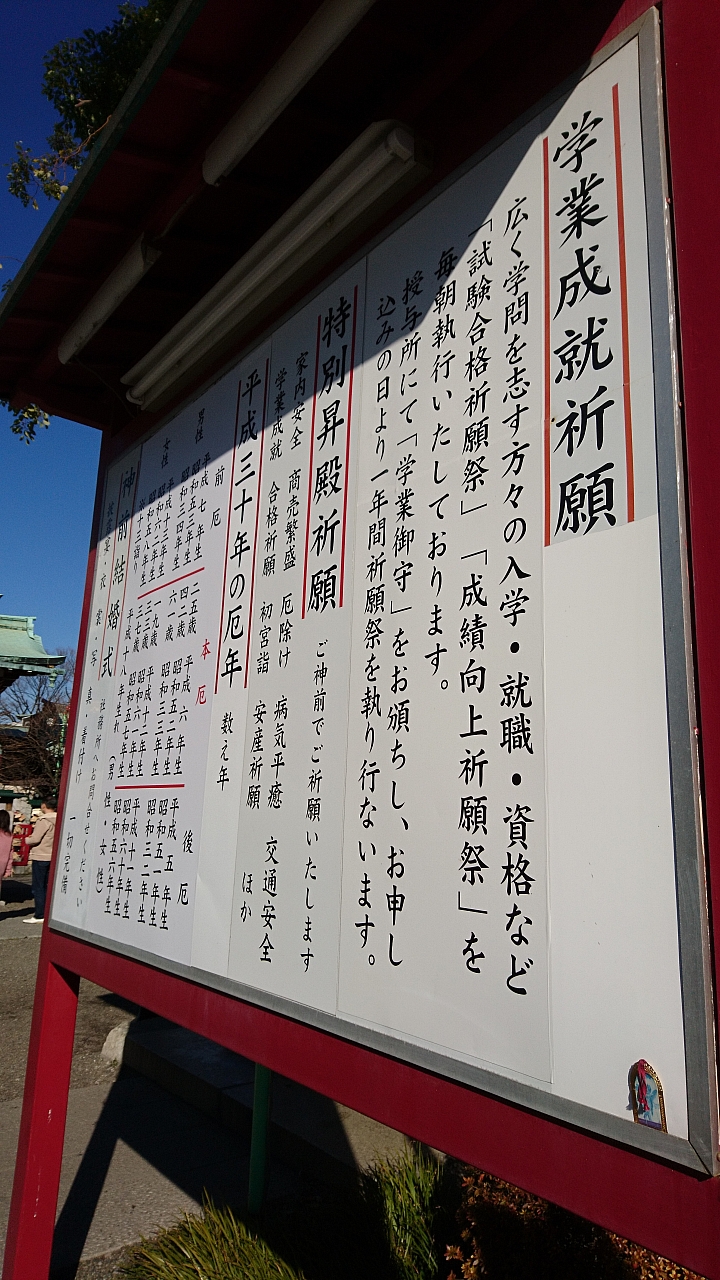 学業成就祈願
広く学問を志す方々の入学・就職・資格など
「試験合格祈願祭」「成績向上祈願祭」を
毎朝執行いたしております。
授与所にて「学業御守」をお頒ちし、お申し
込みの日より一年間祈願祭を執り行ないます。
特別昇殿祈願 ご神前でご祈願いたします
家内安全 商売繁盛 厄除け 病気平癒 交通安全
学業成就 合格祈願 初宮詣 安産祈願 ほか
平成三十年の厄年 数え年
前厄 本厄 後厄
男性 平成七年生 二五歳 平成六年生 平成五年生
昭和五三年生 四二歳 昭和五二年生 昭和五一年生
昭和三四年生 六一歳 昭和三三年生 昭和三二年生
女性 平成十三年生 一九歳 平成十二年生 平成十一年生
昭和六二年生 三三歳 昭和六一年生 昭和六十年生
昭和五八年生 三七歳 昭和五七年生 昭和五六年生
十三詣り 平成十八年生れ (男性・女性)
神前結婚式 社務所へお問合せください
衣裳・写真・着付け 一切完備